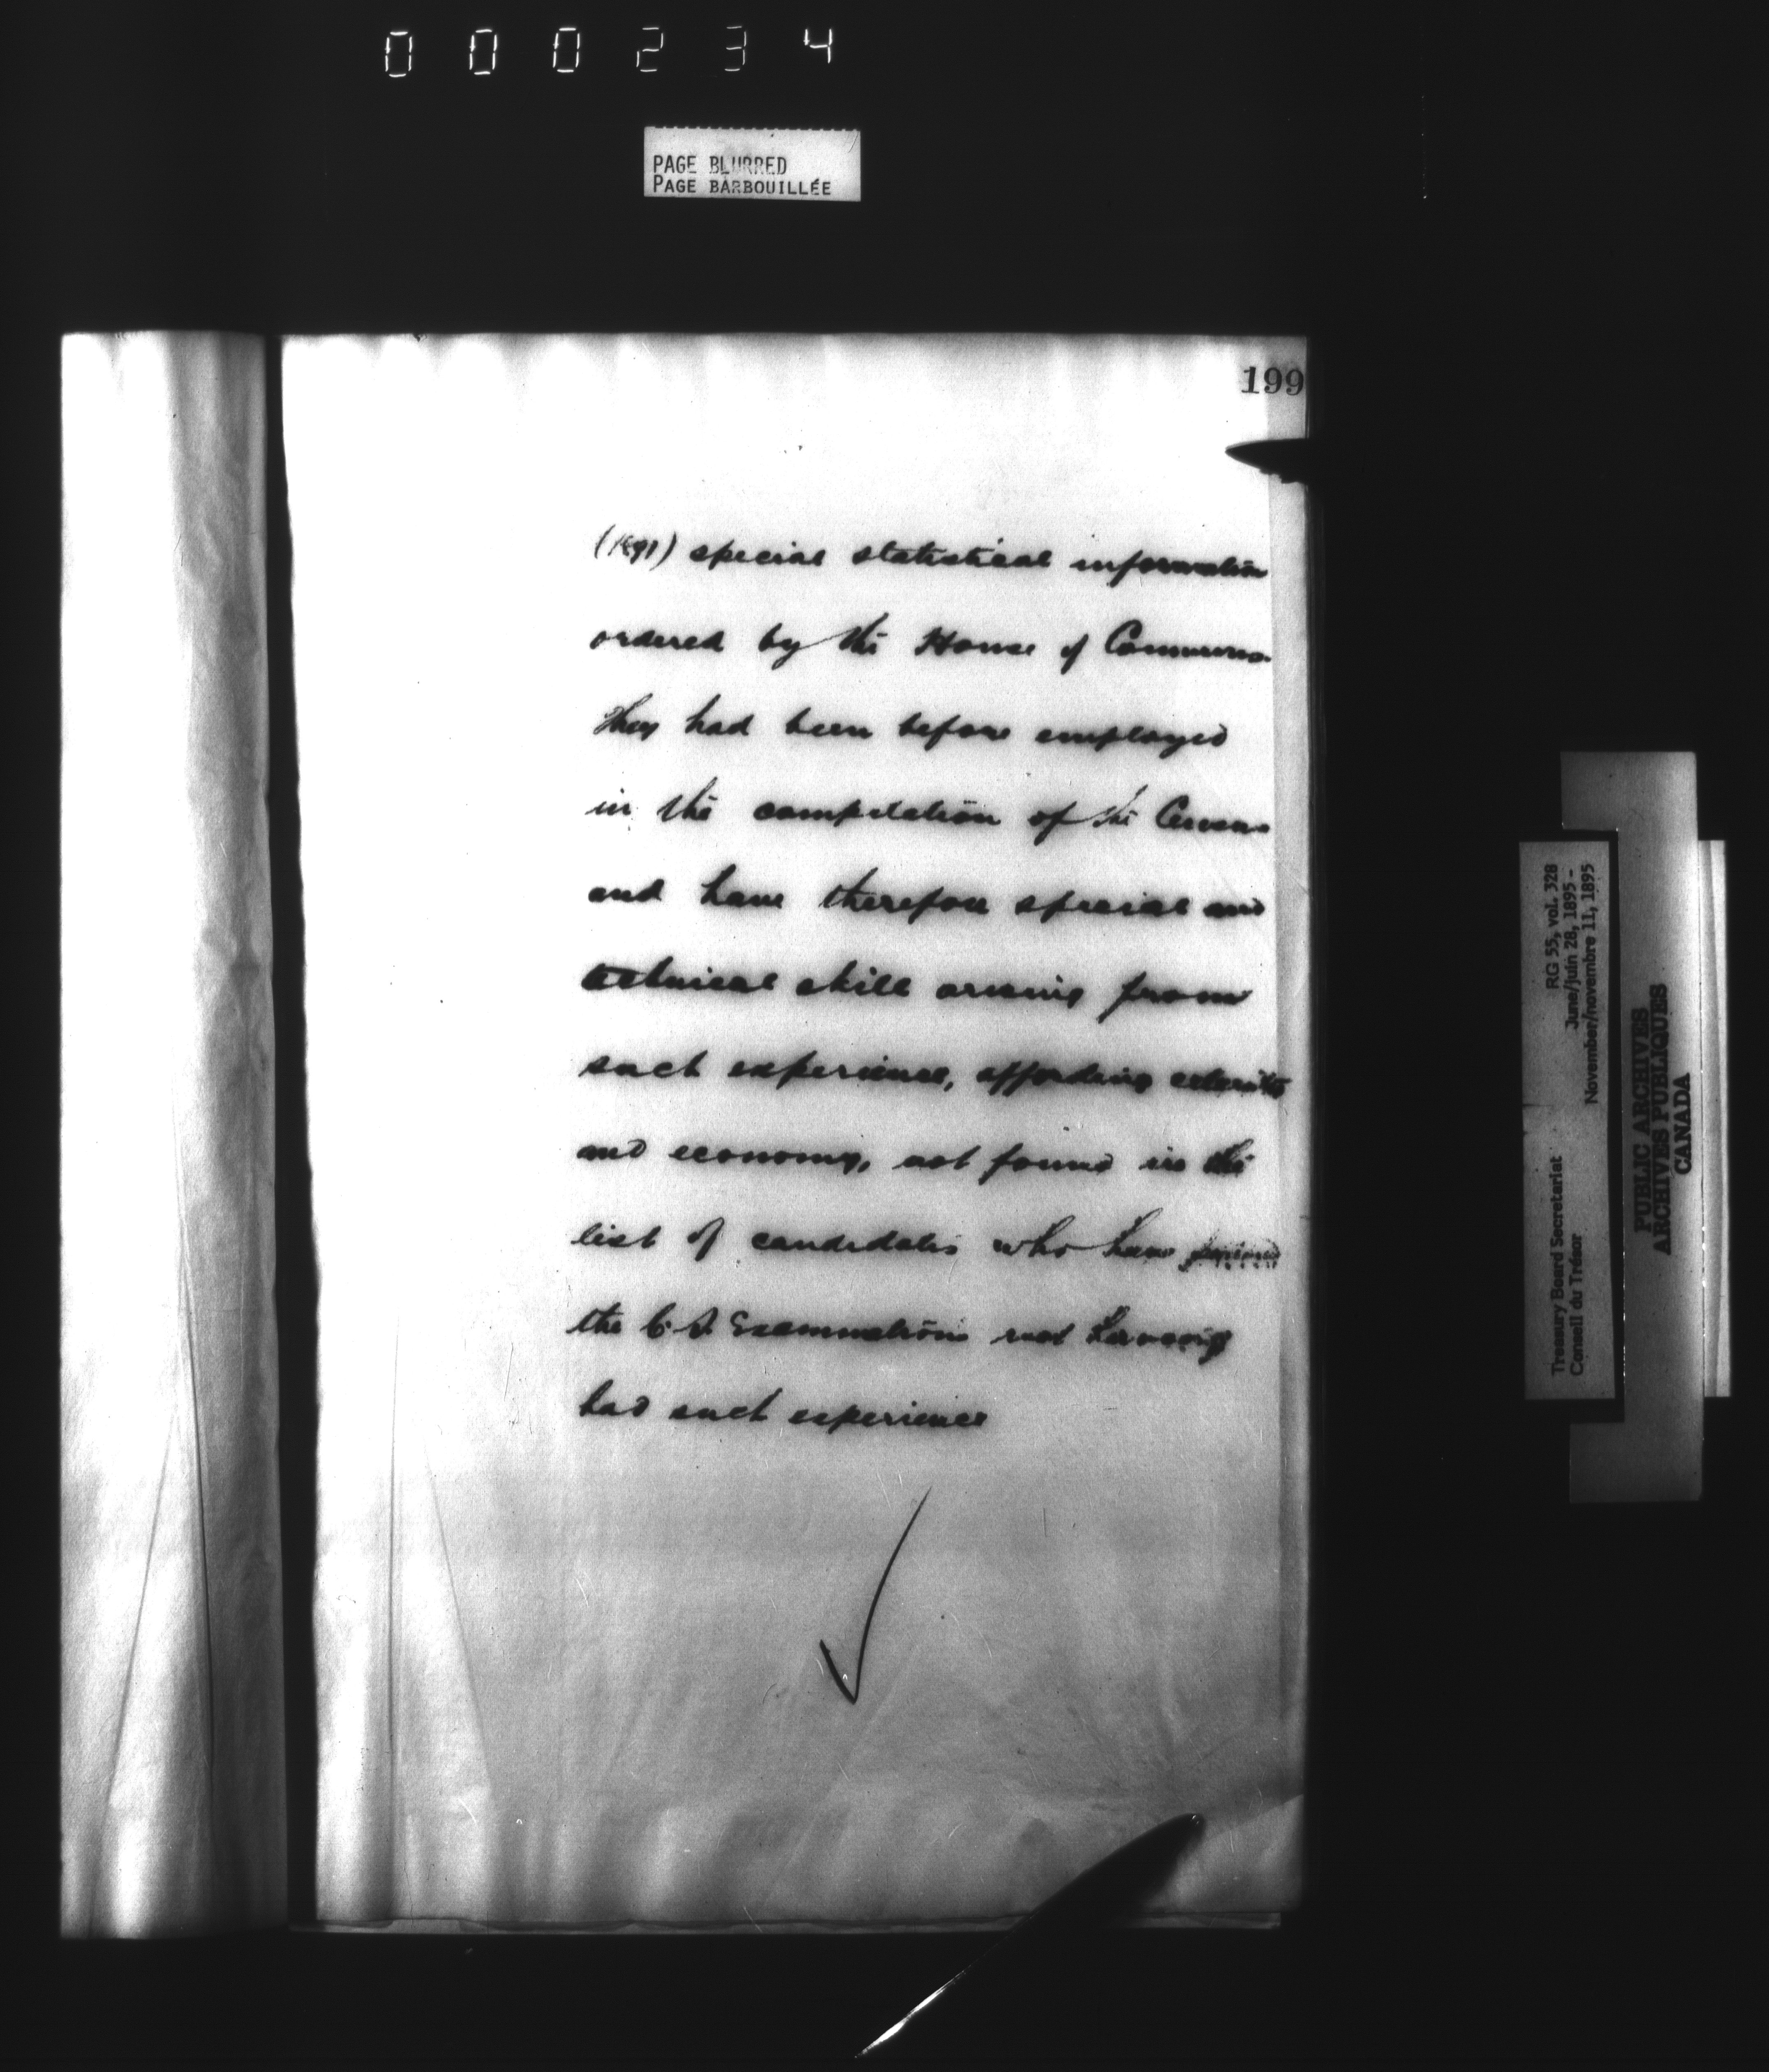 000234
PAGE BLURRED
PAGE BARBOUILLÉE
199
(1891) special statistical information
ordered by the House of Commons.
They had been before employed
in the compilation of the Census
and have therefore special and
technical skill arising from
such experience, affording celerity
and economy, not found in the
list of candidates who have passed
the C. S. Examinations not having
had such experience
Treasury Board Secretariat RG 55, vol. 328
Conseil du Trésor June/juin 28, 1895 -
November/novembre 11, 1895
PUBLIC ARCHIVES
ARCHIVES PUBLIQUES
CANADA